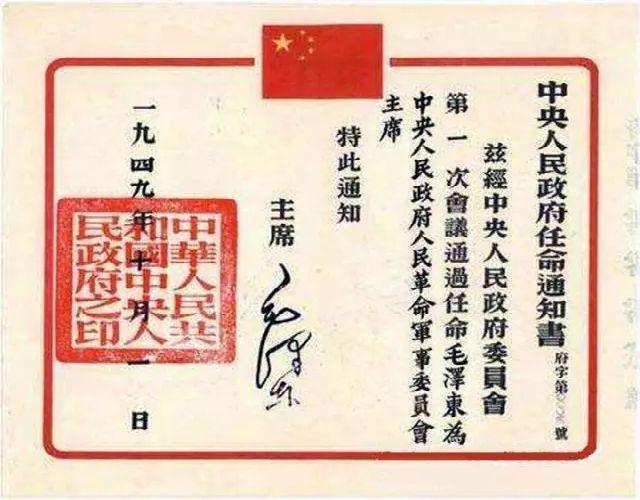 中央人民政府任命通知書
府字第 號
兹經中央人民政府委員會
第一次會議通過任命毛澤東為
中央人民政府人民革命軍事委員會
主席
特此通知
主席
毛澤東
一九四九年十月一日
中華人民共
和國中央人
民政府之印